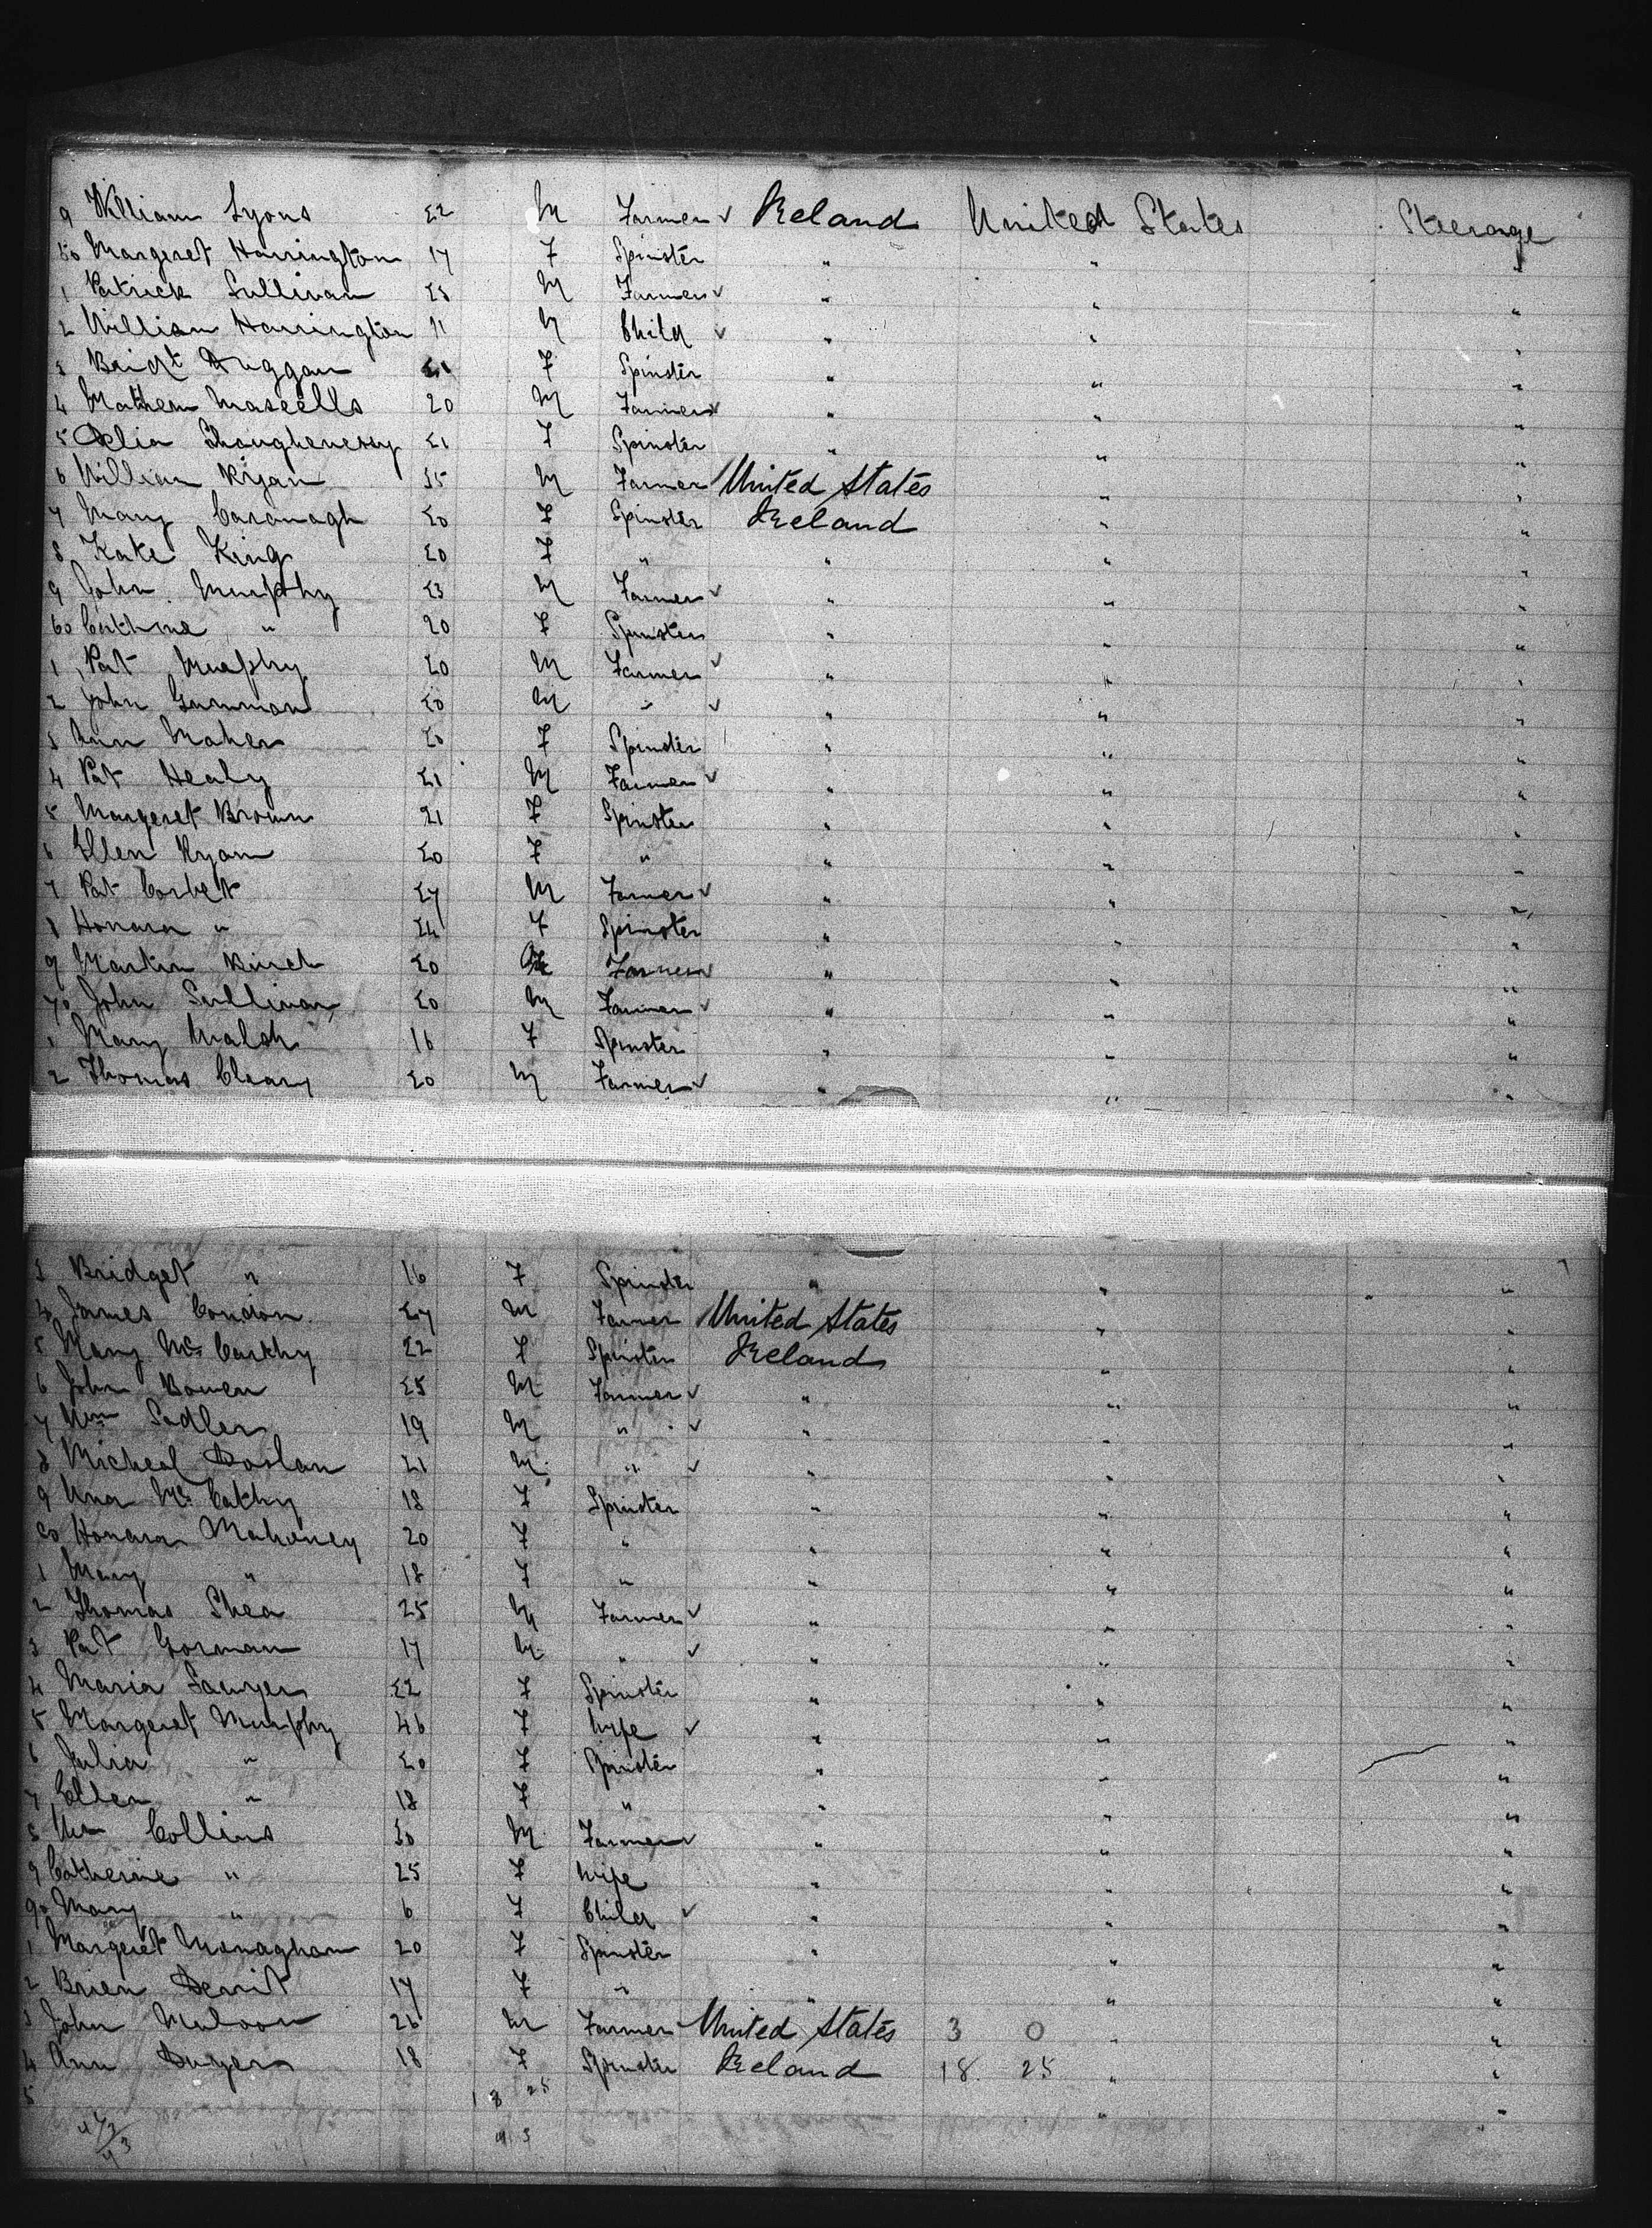 9 William Lyons 22 M Farmer ✓ Ireland United States Steerage
50 Margeret Harrington 17 F Spinster " " "
1 Patrick Sullivan 25 M Farmer ✓ " " "
2 William Harrington 11 M Child ✓ " " "
3 Bridt Duggan 21 F Spinster " " "
4 Mathew 20 M Farmer ✓ " " "
5 Delia Shaughenessy 21 F Spinster " " "
6 William Ryan 35 M Farmer United States " "
7 Mary Cavanagh 20 F Spinster Ireland " "
8 Kate King 20 F " " " "
9 John Murphy 23 M Farmer ✓ " " "
60 Cathrine " 20 F Spinster " " "
1 Pat Murphy 20 M Farmer ✓ " " "
2 John 20 M " ✓ " " "
3 Ann Maher 20 F Spinster " " "
4 Pat Healy 21 M Farmer ✓ " " "
5 Margeret Brown 21 F Spinster " " "
6 Ellen Ryan 20 F " " " "
7 Pat Corbet 27 M Farmer ✓ " " "
8 Honara " 24 F Spinster " " "
9 Martin 20 M Farmer ✓ " " "
70 John Sullivan 20 M Farmer ✓ " " "
1 Mary Walsh 16 F Spinster " " "
2 Thomas Cleary 20 M Farmer ✓ " " "
3 Bridget " 16 F Spinster " " "
4 James Condon 27 M Farmer United States " "
5 Mary Mc Carthy 22 F Spinster Ireland " "
6 John Bowen 25 M Farmer ✓ " " "
7 Wm Sadler 19 M " ✓ " " "
8 Micheal 21 M " ✓ " " "
9 Mc Cathy 18 F Spinster " " "
80 Honara Mahoney 20 F " " " "
1 Mary " 18 F " " " "
2 Thomas Shea 25 M Farmer ✓ " " "
3 Pat Gorman 17 M " ✓ " " "
4 Maria Sawyer 22 F Spinster " " "
5 Margeret Murphy 46 F Wife ✓ " " "
6 Julia " 20 F Spinster " " "
7 Ellen " 18 F " " " "
8 Wm Collins 30 M Farmer ✓ " " "
9 Catherine " 25 F Wife " " "
90 Mary " 6 F Child ✓ " " "
1 Margeret Monaghan 20 F Spinster " " "
2 Brien 17 F " " " "
3 John 26 M Farmer United States 3 0 " "
4 Ann Dwyer 18 F Spinster Ireland 18 25 " "
5 18 25 " "
43